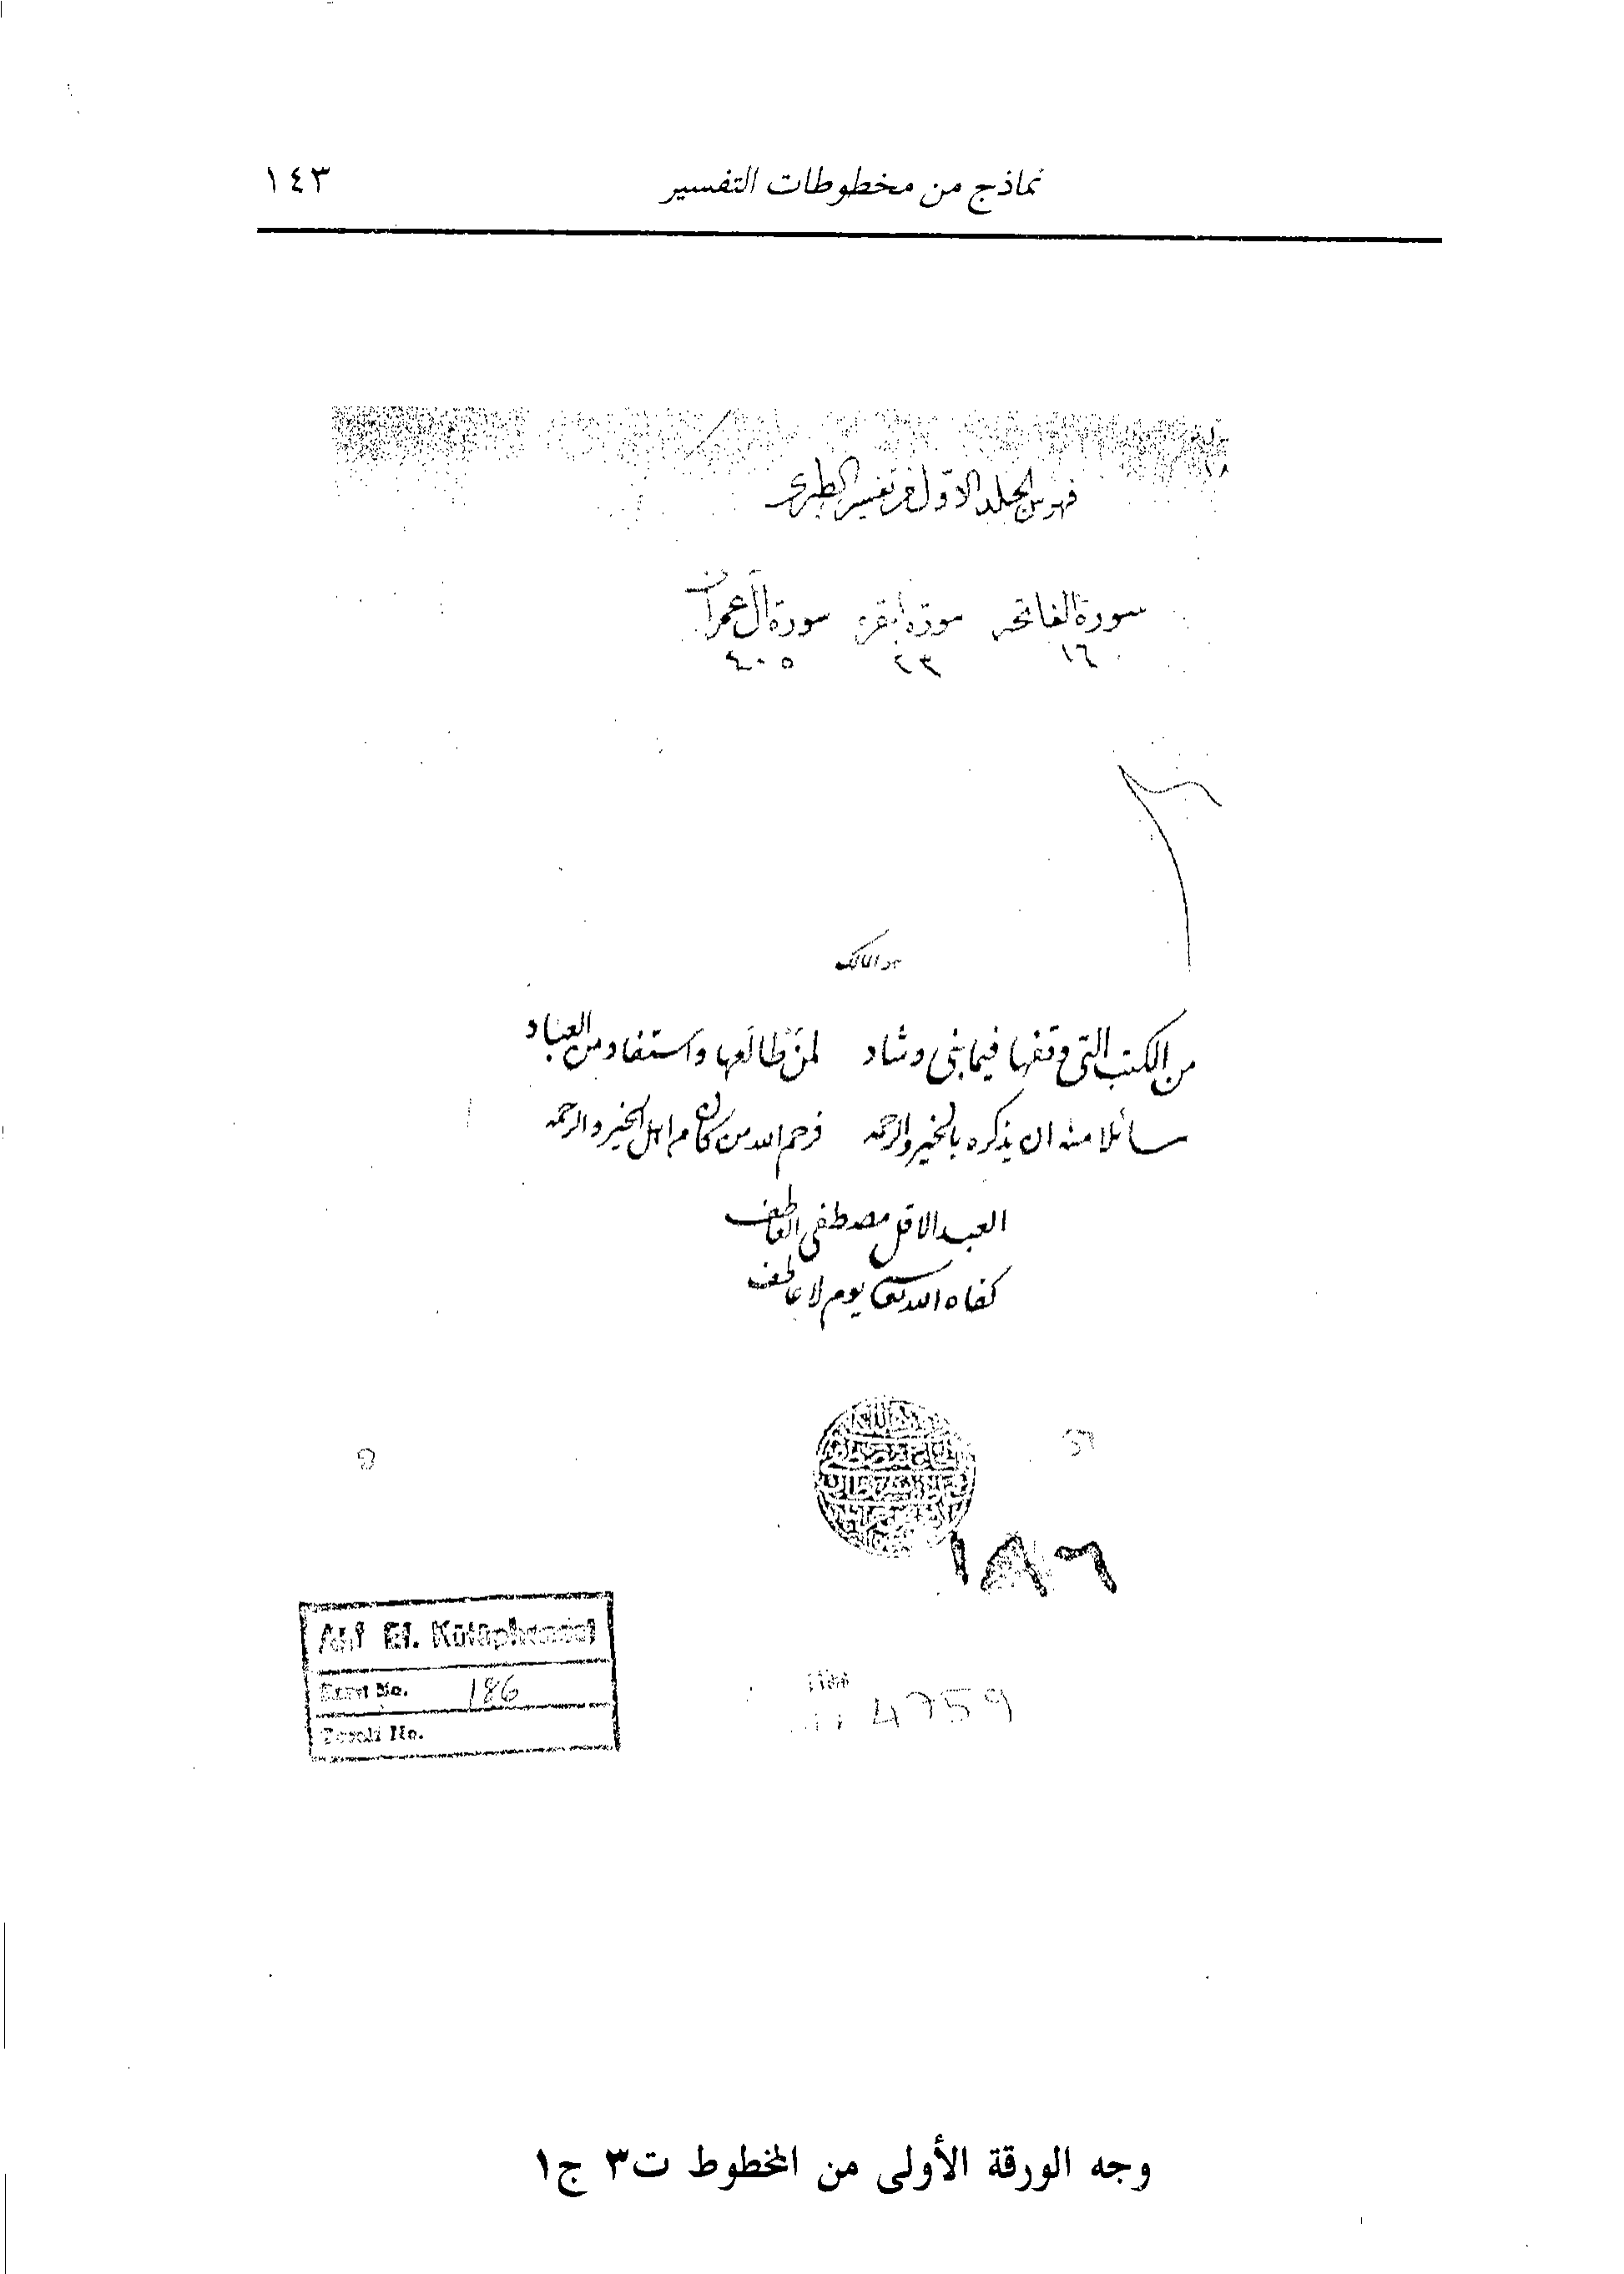 نماذج من مخطوطات التفسير ١٤٣
فهرس الجلد الاول من تفسير الطبرى
سورة الفاتحه سورة البقره سورة آل عمران
١٦ ٢٣ ٤٠٥
هو المالك
من الكتب التى وقفها فيما بنى وشاد لمن طالعها واستفاد من العباد
سائلا منه ان يذكره بالخير والرحمه فرحم الله من كان من اهل الخير والرحمه
العبد الاقل مصطفى العاطف
كفاه الله يوم لا عاطف
١٨٦
Atıf Ef. Kütüphanesi
Eski No. 186
Tasnif No.
4759
وجه الورقة الأولى من المخطوط ت٣ ج١